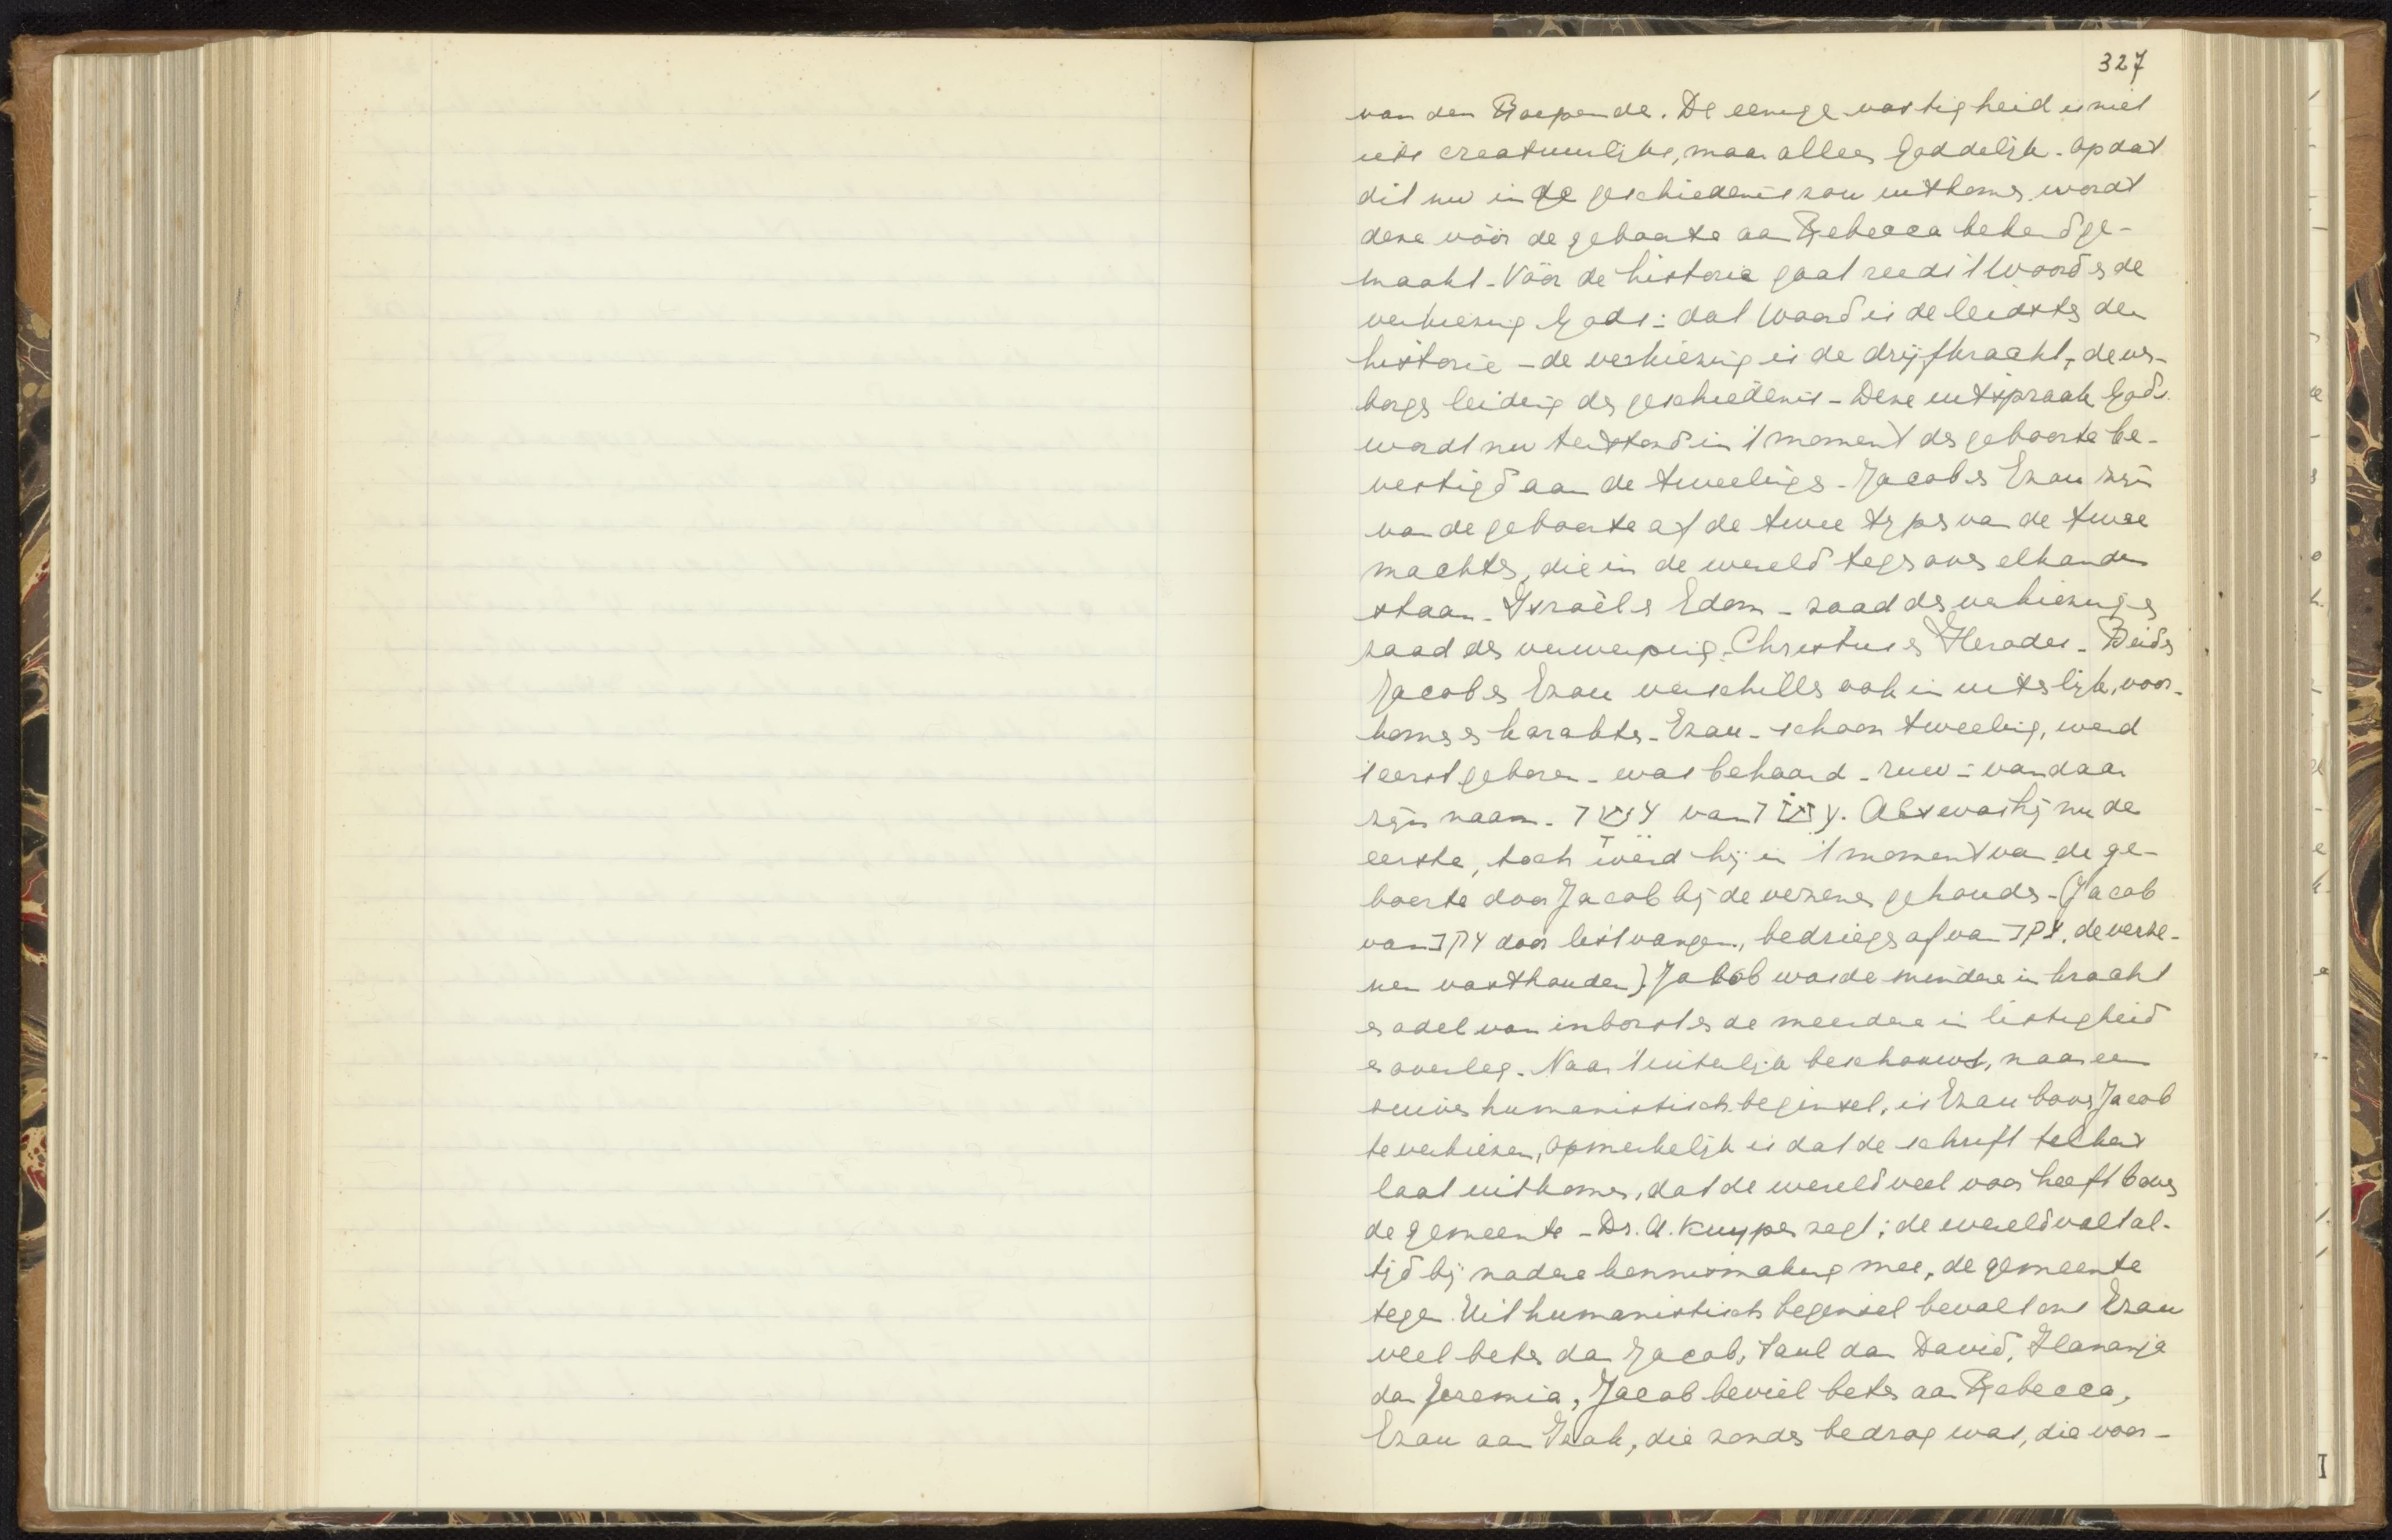 327
van den Roepende. De eenige vastigheid is niet
iets creatuurlijks, maar alleen Goddelijk. Opdat
dit nu in de geschiedenis zou uitkomen wordt
deze vóór de geboorte aan Rebecca bekend ge-
maakt. Vóór de historie gaat reeds 't Woord en de
verkiezing Gods: dat Woord is de leidster der
historie - de verkiezing is de drijfkracht, de ver-
borgen leiding der geschiedenis - Deze uitspraak Gods
wordt nu terstond in 't moment der geboorte be-
vestigd aan de tweelingen. Jacob en Ezau zijn
van de geboorte af de twee typen van de twee
machten, die in de wereld tegenover elkander
staan. Israël en Edom - zaad der verkiezing en
zaad der verwerping. Christus en Herodes. Beiden
Jacob en Ezau verschillen ook in uiterlijk, voor-
komen en karakter. Ezau - schoon tweeling, werd
't eerst geboren - was behaard - ruw - vandaar
zijn naam. עשו van עשו. Alzoo was hij nu de
eerste, toch werd hij in 't moment van de ge-
boorte door Jacob bij de verzenen gehouden - (Jacob
van עקב door list vangen, bedriegen of van עקב, de verze-
nen vasthouden). Jakob was de mindere in kracht
en adel van inborst en de meerdere in listigheid
en overleg. Naar 't uiterlijk beschouwt, naar een
zuiver humanistisch beginsel, is Ezau boven Jacob
te verkiezen, opmerkelijk is dat de schrift telkens
laat uitkomen, dat de wereld veel voor heeft boven
de gemeente - Dr. A. Kuyper zegt: de wereld valt al-
tijd bij nadere kennismaking mee, de gemeente
tegen. Uit humanistisch beginsel bevalt ons Ezau
veel beter dan Jacob, Saul dan David, Hananja
dan Jeremia, Jacob beviel beter aan Rebecca,
Ezau aan Izak, die zonder bedrog was, die voor-